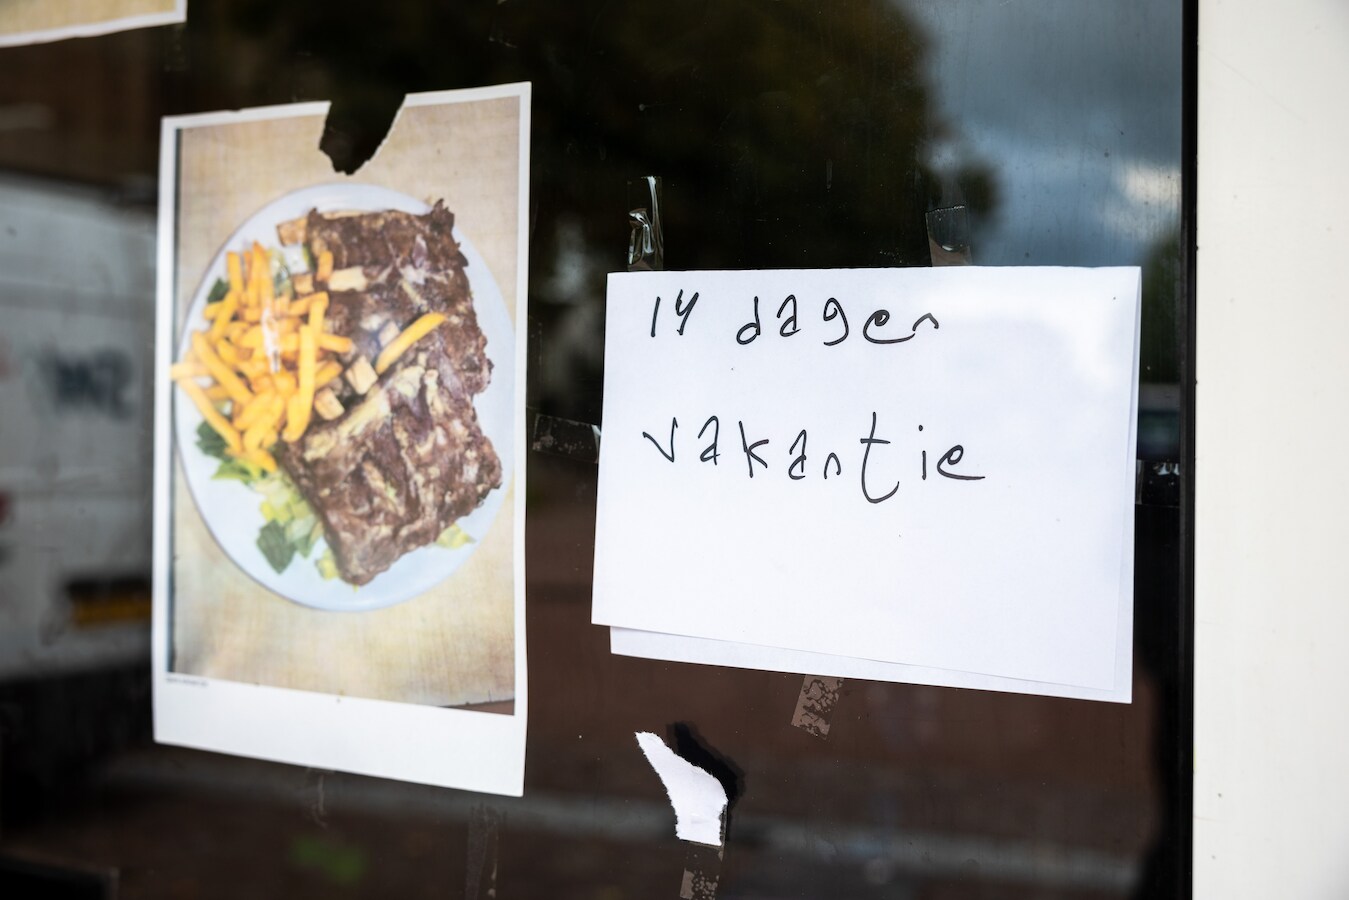 14 dagen
vakantie